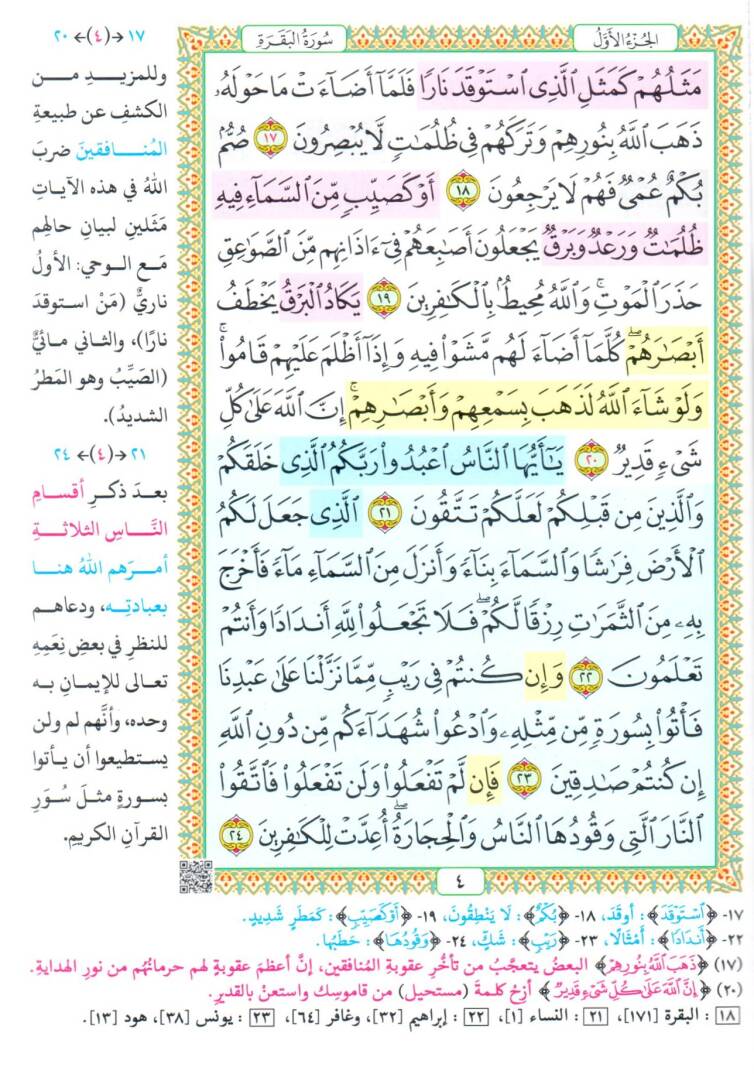 الجزء الأول
سورة البقرة
مَثَلُهُمْ كَمَثَلِ ٱلَّذِى ٱسْتَوْقَدَ نَارًا فَلَمَّآ أَضَآءَتْ مَا حَوْلَهُۥ
ذَهَبَ ٱللَّهُ بِنُورِهِمْ وَتَرَكَهُمْ فِى ظُلُمَٰتٍ لَّا يُبْصِرُونَ ١٧ صُمٌّۢ
بُكْمٌ عُمْىٌ فَهُمْ لَا يَرْجِعُونَ ١٨ أَوْ كَصَيِّبٍ مِّنَ ٱلسَّمَآءِ فِيهِ
ظُلُمَٰتٌ وَرَعْدٌ وَبَرْقٌ يَجْعَلُونَ أَصَٰبِعَهُمْ فِىٓ ءَاذَانِهِم مِّنَ ٱلصَّوَٰعِقِ
حَذَرَ ٱلْمَوْتِ ۚ وَٱللَّهُ مُحِيطٌۢ بِٱلْكَٰفِرِينَ ١٩ يَكَادُ ٱلْبَرْقُ يَخْطَفُ
أَبْصَٰرَهُمْ ۖ كُلَّمَآ أَضَآءَ لَهُم مَّشَوْا۟ فِيهِ وَإِذَآ أَظْلَمَ عَلَيْهِمْ قَامُوا۟ ۚ
وَلَوْ شَآءَ ٱللَّهُ لَذَهَبَ بِسَمْعِهِمْ وَأَبْصَٰرِهِمْ ۚ إِنَّ ٱللَّهَ عَلَىٰ كُلِّ
شَىْءٍ قَدِيرٌ ٢٠ يَٰٓأَيُّهَا ٱلنَّاسُ ٱعْبُدُوا۟ رَبَّكُمُ ٱلَّذِى خَلَقَكُمْ
وَٱلَّذِينَ مِن قَبْلِكُمْ لَعَلَّكُمْ تَتَّقُونَ ٢١ ٱلَّذِى جَعَلَ لَكُمُ
ٱلْأَرْضَ فِرَٰشًا وَٱلسَّمَآءَ بِنَآءً وَأَنزَلَ مِنَ ٱلسَّمَآءِ مَآءً فَأَخْرَجَ
بِهِۦ مِنَ ٱلثَّمَرَٰتِ رِزْقًا لَّكُمْ ۖ فَلَا تَجْعَلُوا۟ لِلَّهِ أَندَادًا وَأَنتُمْ
تَعْلَمُونَ ٢٢ وَإِن كُنتُمْ فِى رَيْبٍ مِّمَّا نَزَّلْنَا عَلَىٰ عَبْدِنَا
فَأْتُوا۟ بِسُورَةٍ مِّن مِّثْلِهِۦ وَٱدْعُوا۟ شُهَدَآءَكُم مِّن دُونِ ٱللَّهِ
إِن كُنتُمْ صَٰدِقِينَ ٢٣ فَإِن لَّمْ تَفْعَلُوا۟ وَلَن تَفْعَلُوا۟ فَٱتَّقُوا۟
ٱلنَّارَ ٱلَّتِى وَقُودُهَا ٱلنَّاسُ وَٱلْحِجَارَةُ ۖ أُعِدَّتْ لِلْكَٰفِرِينَ ٢٤
٤
١٧→(٤)←٢٠
وللمزيدِ من
الكشف عن طبيعةِ
المُنافقين ضربَ
اللهُ في هذه الآياتِ
مَثَلين لبيانِ حالِهم
مَع الوحي: الأولُ
ناريٌّ (مَنْ استوقدَ
نارًا)، والثاني مائيٌّ
(الصَيِّبُ وهو المَطرُ
الشديدُ).
٢١→(٤)←٢٤
بعدَ ذكرِ أقسامِ
النَّاسِ الثلاثةِ
أمرَهم اللهُ هنا
بعبادتِه، ودعاهم
للنظرِ في بعضِ نِعَمِه
تعالى للإيمانِ به
وحده، وأنَّهم لم ولن
يستطيعوا أن يأتوا
بسورةٍ مثلَ سُوَرِ
القرآنِ الكريمِ.
١٧- ﴿ٱسْتَوْقَدَ﴾: أوقَدَ، ١٨- ﴿بُكْمٌ﴾: لَا يَنْطِقُونَ، ١٩- ﴿أَوْ كَصَيِّبٍ﴾: كمَطَرٍ شَدِيدٍ.
٢٢- ﴿أَندَادًا﴾: أَمْثَالًا، ٢٣- ﴿رَيْبٍ﴾: شَكٍّ، ٢٤- ﴿وَقُودُهَا﴾: حَطَبُهَا.
(١٧) ﴿ذَهَبَ ٱللَّهُ بِنُورِهِمْ﴾ البعض يتعجَّبُ من تأخُّرِ عقوبةِ المُنافقين، إنَّ أعظمَ عقوبةٍ لهم حرمانُهُم من نورِ الهدايةِ.
(٢٠) ﴿إِنَّ ٱللَّهَ عَلَىٰ كُلِّ شَىْءٍ قَدِيرٌ﴾ أزِحْ كلمةَ (مستحيل) من قاموسِك واستعنْ بالقديرِ.
١٨: البقرة [١٧١]، ٢١: النساء [١]، ٢٢: إبراهيم [٣٢]، وغافر [٦٤]، ٢٣: يونس [٣٨]، هود [١٣].